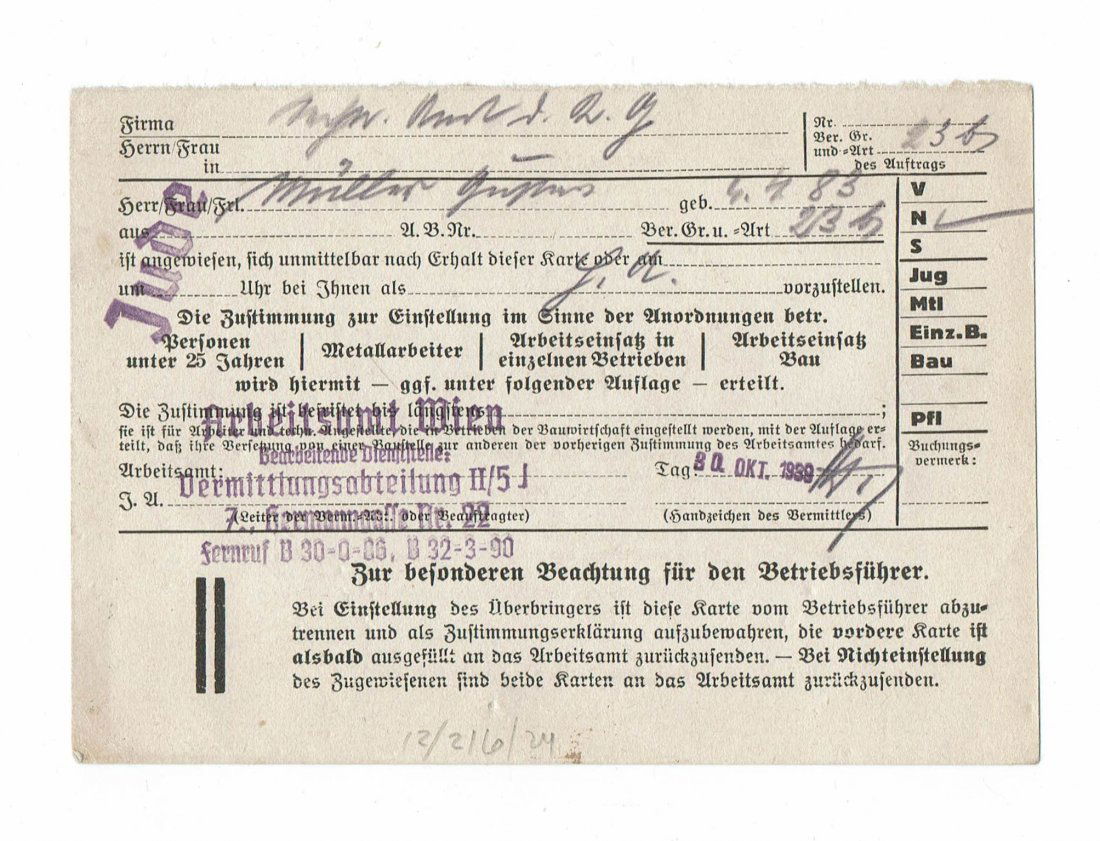 Firma d. K. G.
Herrn/Frau
in
Nr.
Ver. Gr. und =Art 23 b
des Auftrags
Jude
Herr/Frau/Frl. Müller Gustav geb. 4. 4 83
aus A.B.Nr. Ber. Gr. u. =Art 23 b
ist angewiesen, sich unmittelbar nach Erhalt dieser Karte oder am
um Uhr bei Ihnen als vorzustellen.
Die Zustimmung zur Einstellung im Sinne der Anordnungen betr.
Personen unter 25 Jahren
Metallarbeiter
Arbeitseinsatz in einzelnen Betrieben
Arbeitseinsatz Bau
wird hiermit — ggf. unter folgender Auflage — erteilt.
Die Zustimmung ist befristet bis längstens ;
sie ist für Arbeiter und techn. Angestellte, die in Betrieben der Bauwirtschaft eingestellt werden, mit der Auflage er=
teilt, daß ihre Versetzung von einer Baustelle zur anderen der vorherigen Zustimmung des Arbeitsamtes bedarf.
Arbeitsamt: Tag 30. OKT. 1939
I. A.
(Leiter der Verm.=Abt. oder Beauftragter) (Handzeichen des Vermittlers)
Arbeitsamt Wien
Bearbeitende Dienststelle:
Vermittlungsabteilung II/5 J
7., Hermanngasse Nr. 22
Fernruf B 30-0-06, B 32-3-90
V
N
S
Jug
Mtl
Einz.B.
Bau
Pfl
Buchungs=
vermerk:
Zur besonderen Beachtung für den Betriebsführer.
Bei Einstellung des Überbringers ist diese Karte vom Betriebsführer abzu=
trennen und als Zustimmungserklärung aufzubewahren, die vordere Karte ist
alsbald ausgefüllt an das Arbeitsamt zurückzusenden. — Bei Nichteinstellung
des Zugewiesenen sind beide Karten an das Arbeitsamt zurückzusenden.
12/2/6/24